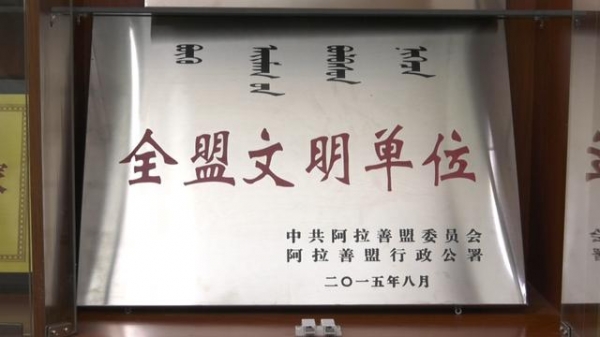 全盟文明单位
中共阿拉善盟委员会
阿拉善盟行政公署
二〇一五年八月